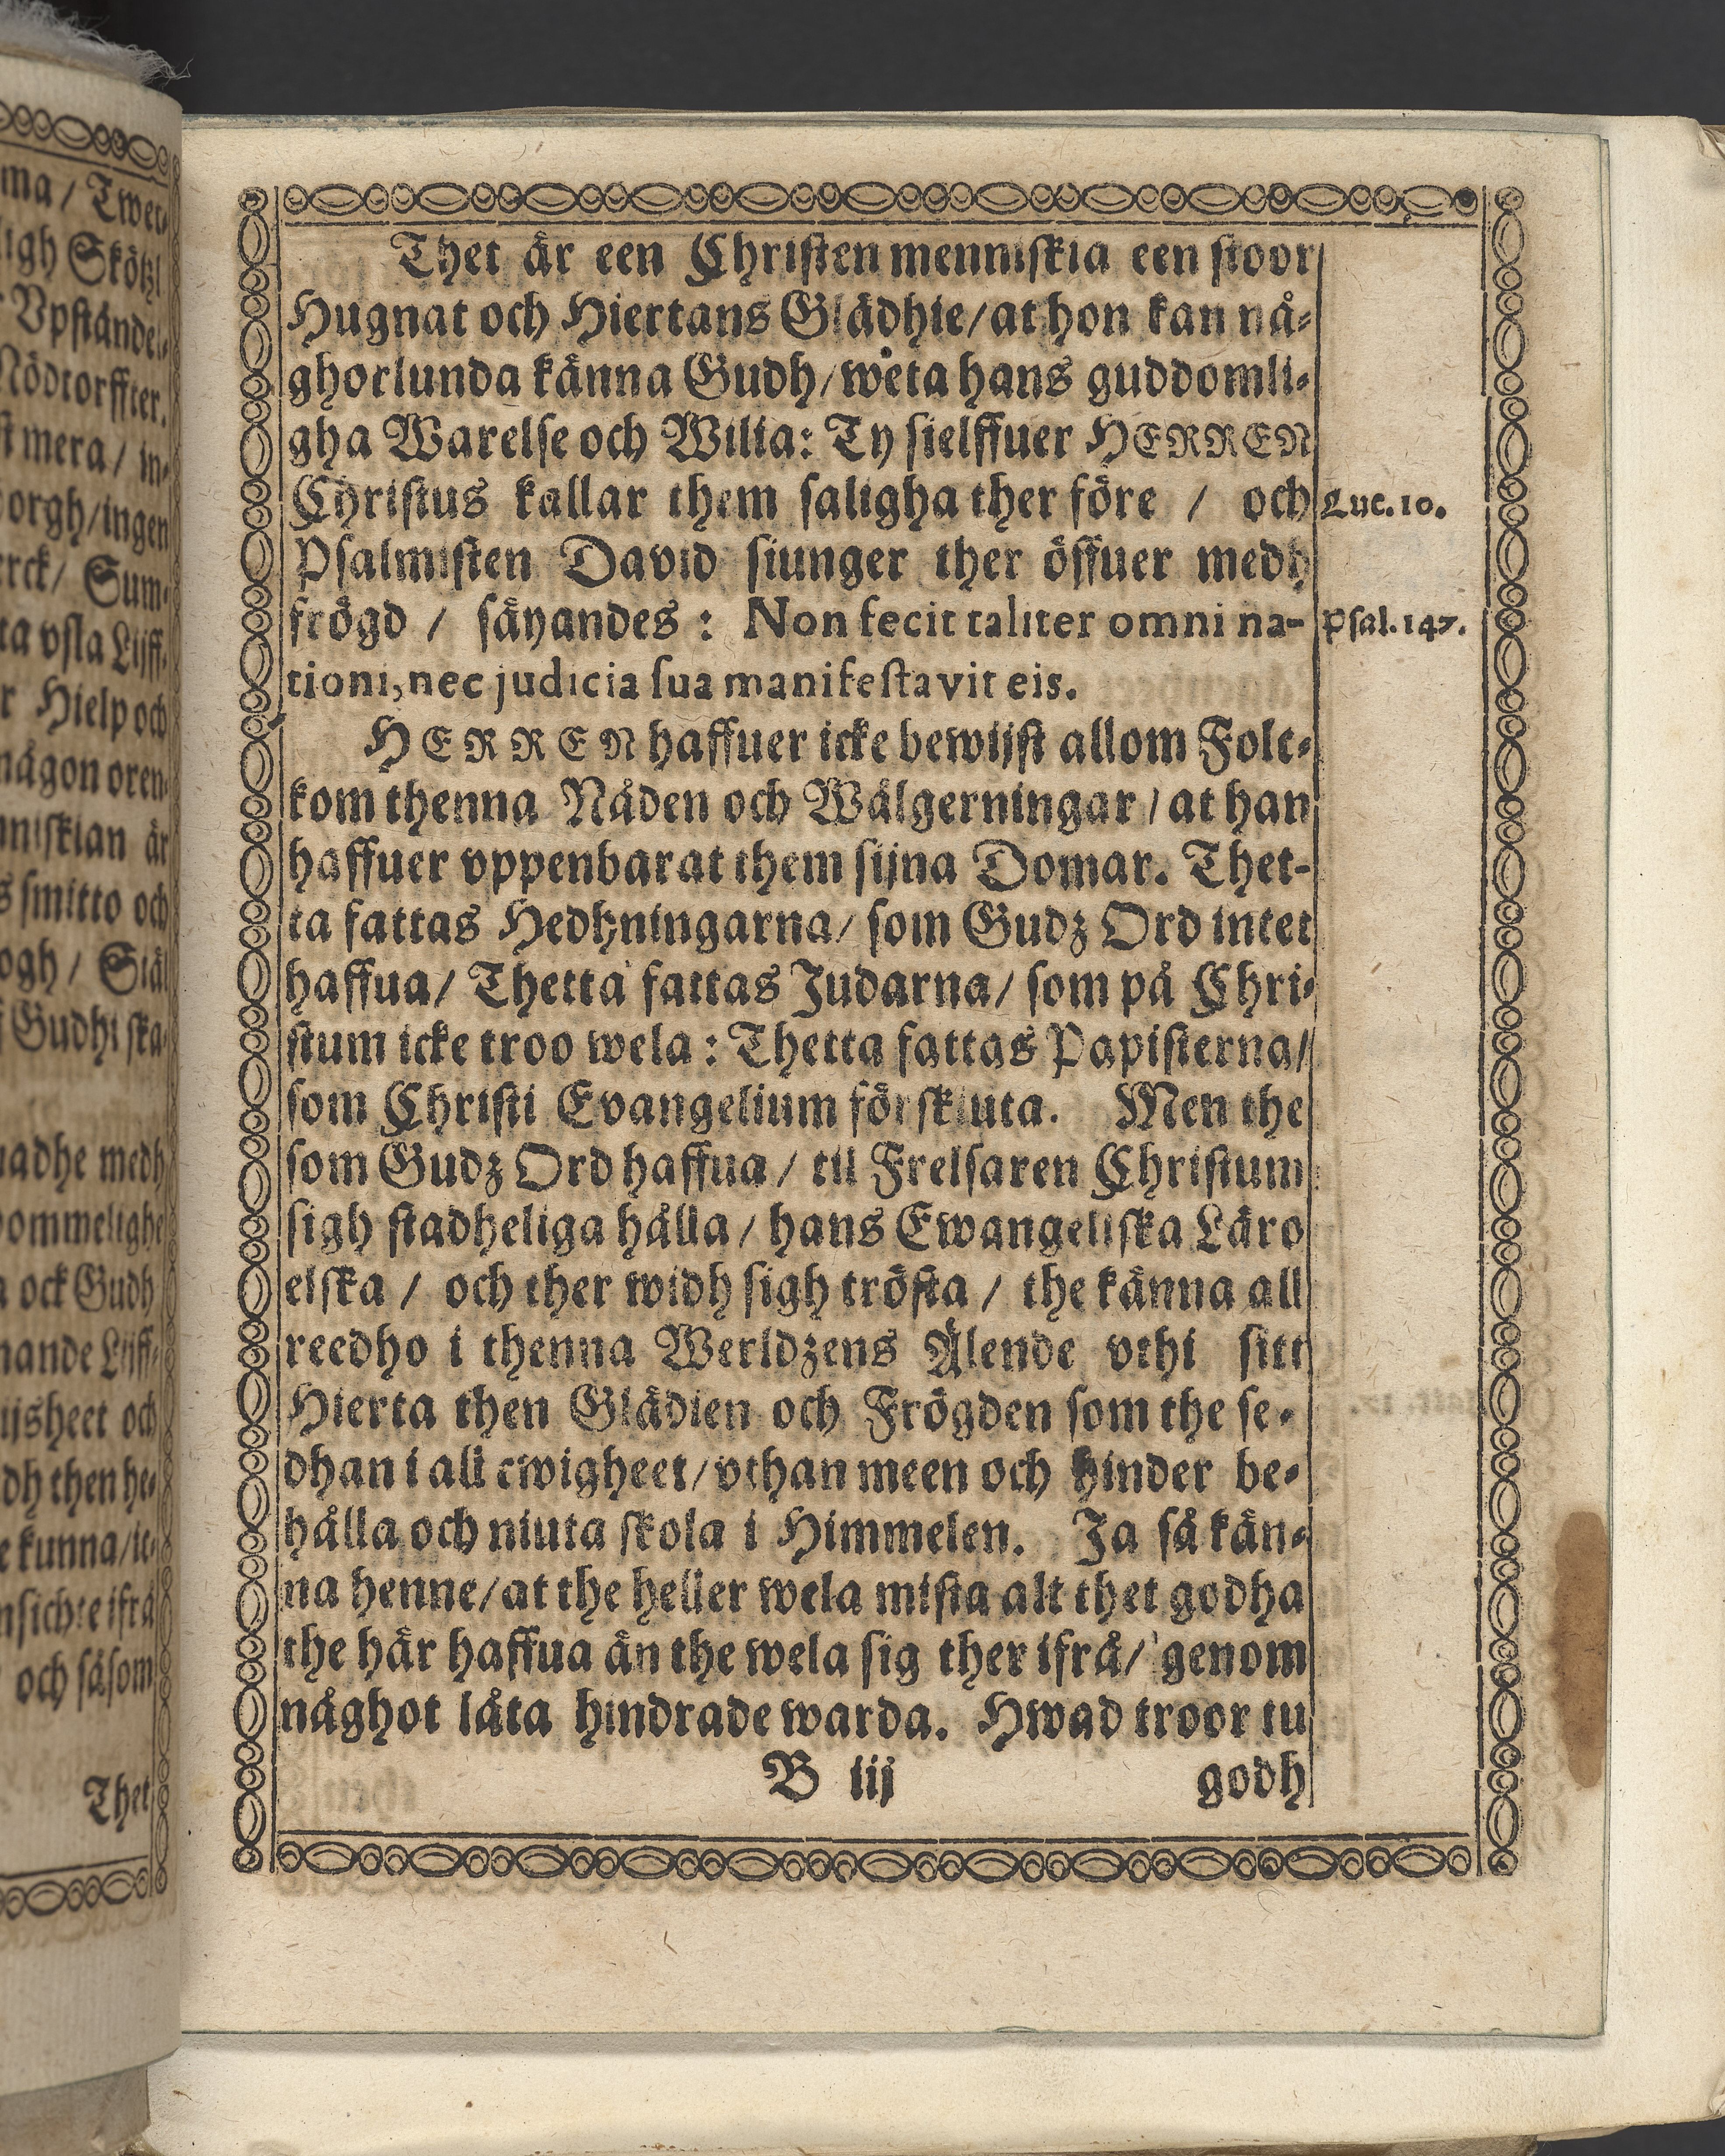 ma / Twet-
ligh Skötzl
Vpståndel-
Nödtorffter.
st mera / in-
borgh / ingen
erck / Sum-
ta vsla Lijff-
r Hielp och
någon oren-
nniskian är
s smitto och
ogh / Siäl
ff Gudhi ska-
uadhe medh
dommelighe
a ock Gudh
nande Lijff-
ijsheet och
dh then he-
e kunna / ic-
nsichte ifrå
och såsom
Thet
Thet är een Christen menniskia een stoor
Hugnat och Hiertans Glädhie / at hon kan nå-
ghorlunda känna Gudh / weta hans guddomli-
gha Warelse och Wilia: Ty sielffuer HERREN
Christus kallar them saligha ther före / och
Luc. 10.
Psalmisten David siunger ther öffuer medh
frögd / säyandes : Non fecit taliter omni na-
Psal. 147.
tioni, nec judicia sua manifestavit eis.
HERREN haffuer icke bewijst allom Folc-
kom thenna Nåden och Wälgerningar / at han
haffuer vppenbarat them sijna Domar. Thet-
ta fattas Hedhningarna / som Gudz Ord intet
haffua / Thetta fattas Judarna / som på Chri-
stum icke troo wela : Thetta fattas Papisterna /
som Christi Evangelium förskiuta. Men the
som Gudz Ord haffua / til Frelsaren Christum
sigh stadheliga hålla / hans Ewangeliska Läro
elska / och ther widh sigh trösta / the känna all
reedho i thenna Werldzens Älende vthi sitt
Hierta then Glädien och Frögden som the se-
dhan i all ewigheet / vthan meen och hinder be-
hålla och niuta skola i Himmelen. Ja så kän-
na henne / at the heller wela mista alt thet godha
the här haffua än the wela sig ther ifrå / genom
någhot låta hindrade warda. Hwad troor tu
B iij
godh